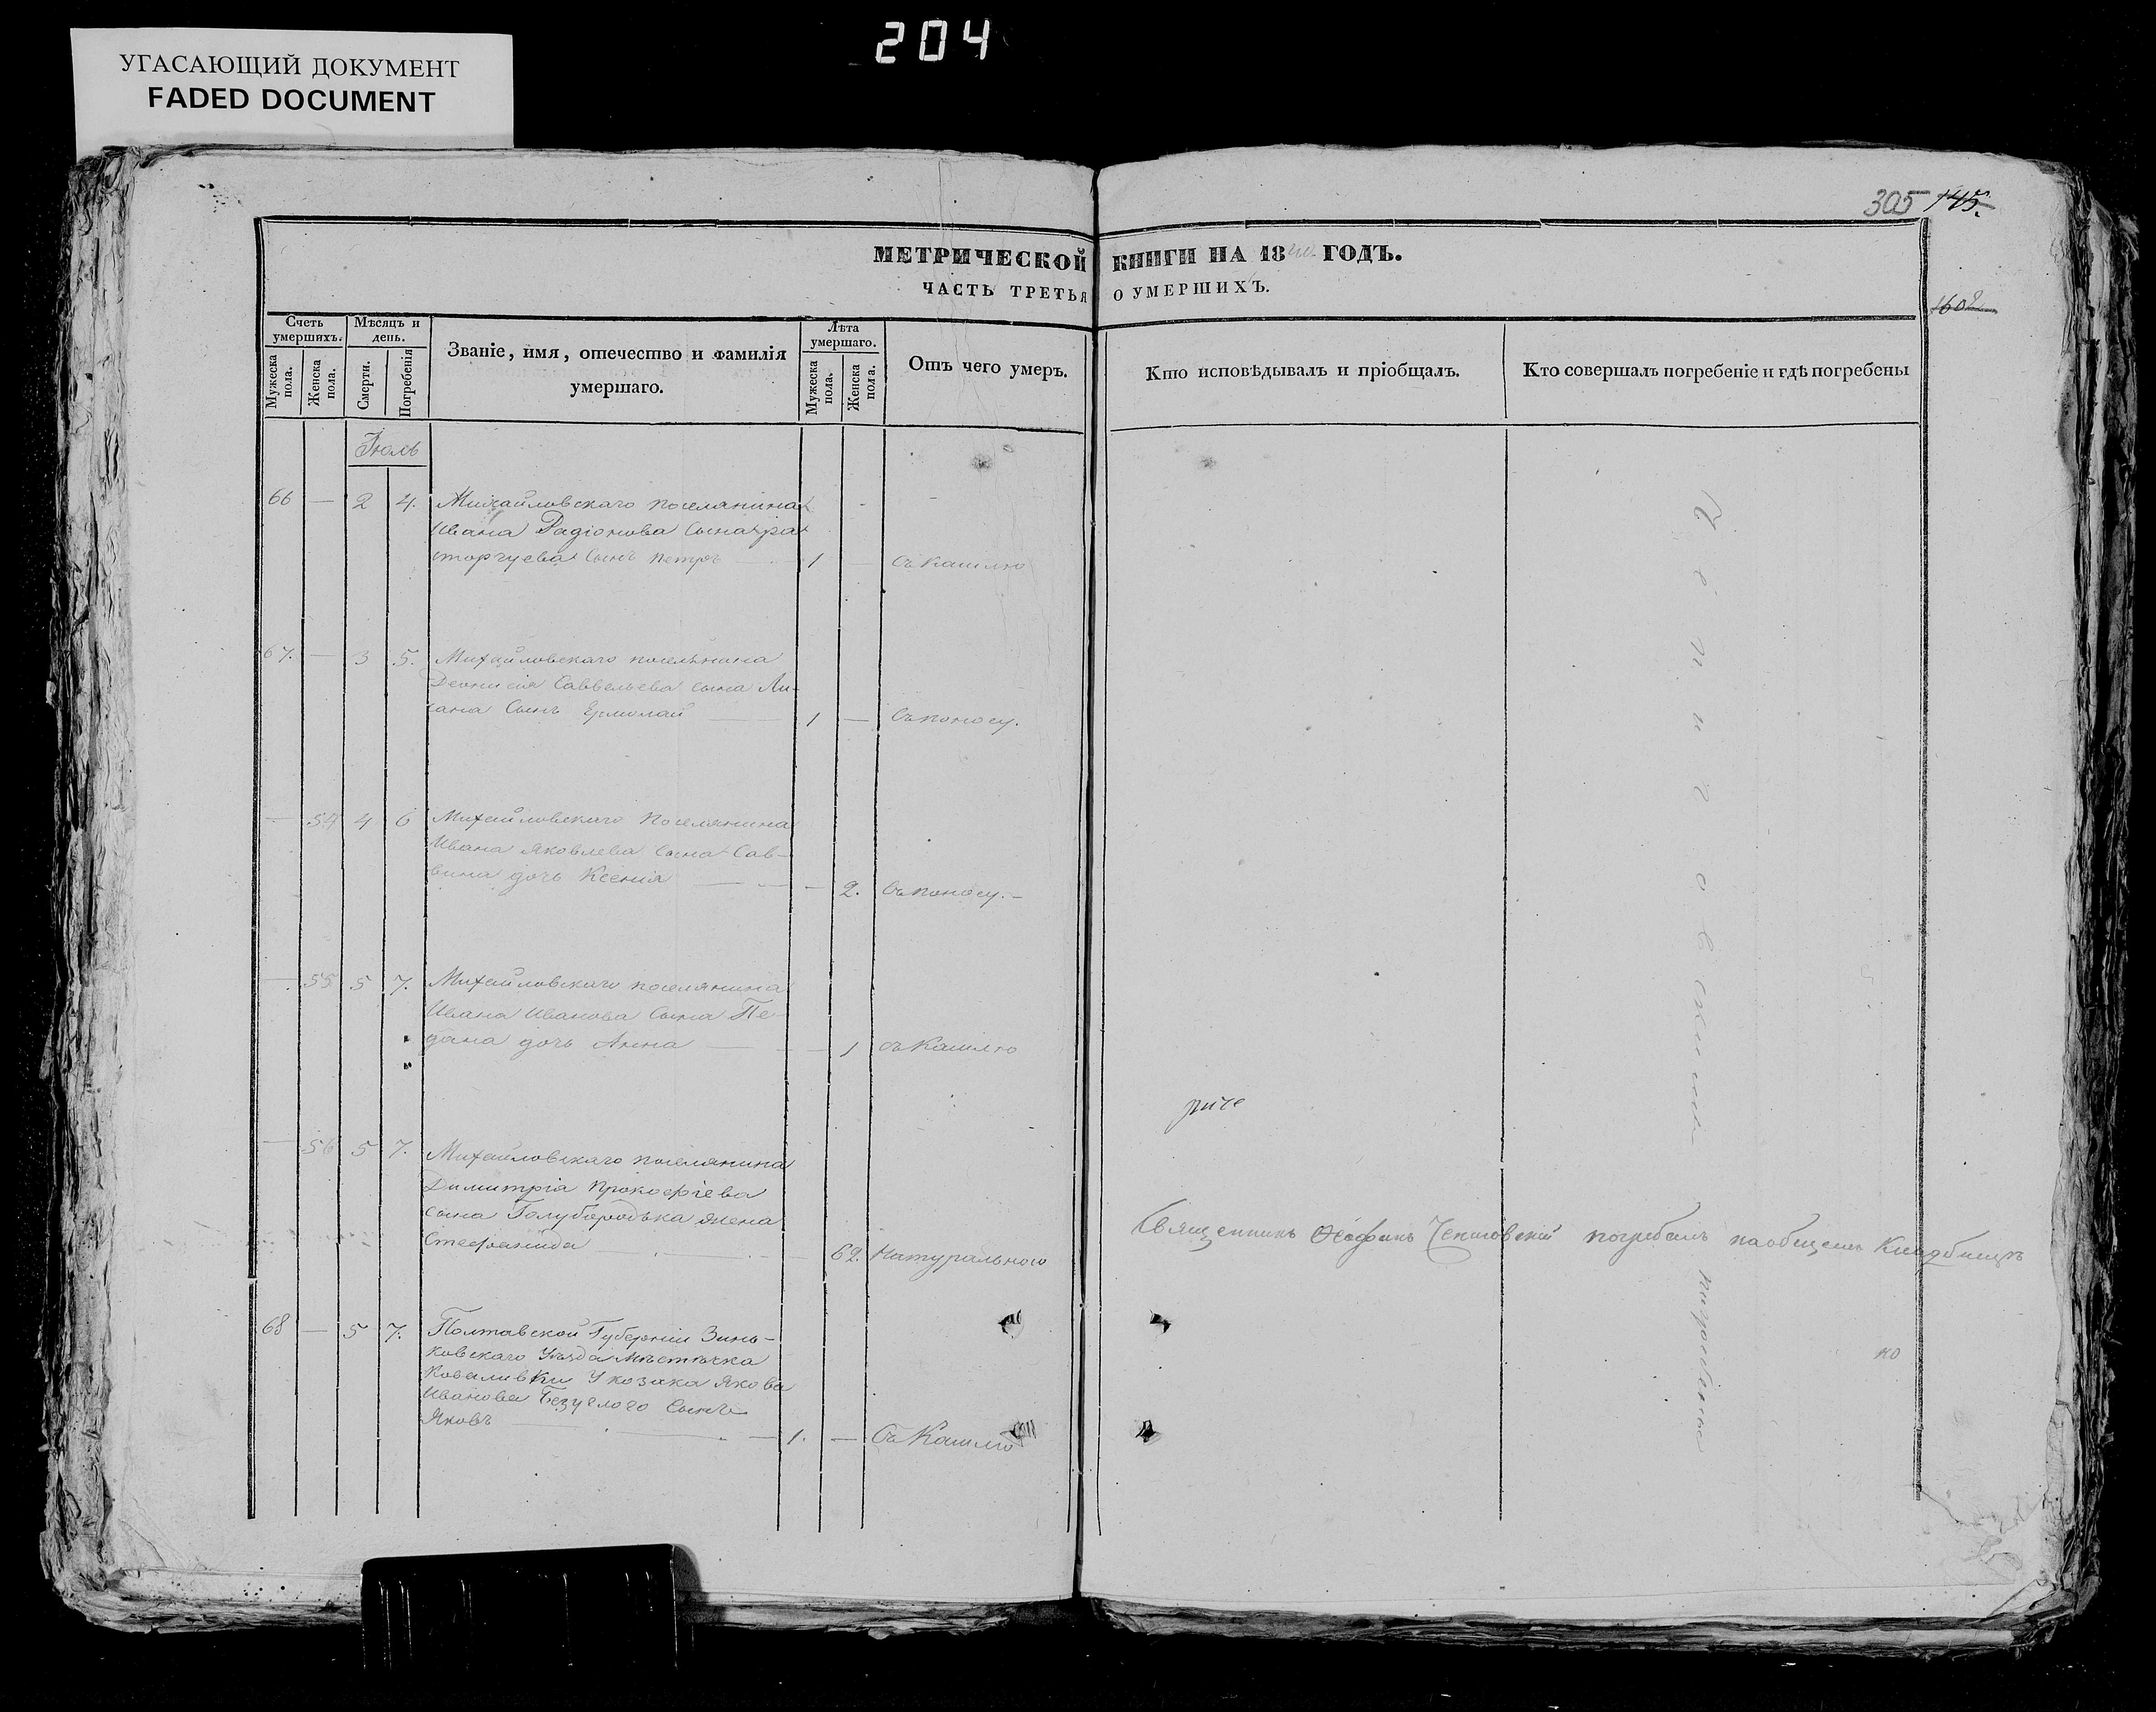 204
УГАСАЮЩИЙ ДОКУМЕНТ
FADED DOCUMENT
305 145.
МЕТРИЧЕСКОЙ КНИГИ НА 1840 ГОДЪ.
ЧАСТЬ ТРЕТЬЯ О УМЕРШИХЪ.
1602
Счетъ умершихъ.
Мѣсяцъ и день.
Званіе, имя, отечество и фамилія умершаго.
Лѣта умершаго.
Отъ чего умеръ.
Кто исповѣдывалъ и пріобщалъ.
Кто совершалъ погребеніе и гдѣ погребены
Мужеска пола.
Женска пола.
Смерти.
Погребенія
Мужеска пола.
Женска пола.
Іюль
66 — 2 4. Михайловскаго поселянина
Ивана Радіонова сына Ра
сторгуева сынъ Петръ — 1 — Съ кашлю
67. — 3 5. Михайловскаго поселянина
Деонисія Саввельева сына Ли-
сана Сынъ Ермолай — 1 — Съ поносу.
— 54 4 6 Михайловскаго поселянина
Ивана Яковлева сына Сав-
вина дочь Ксенія — — — 2. Съ поносу. —
— 55 5 7. Михайловскаго поселянина
Ивана Иванова сына Пе-
дана дочь Анна — — — 1 съ Кашлю
— 56 5 7. Михайловскаго поселянина
Димитрія Прокофіева
сына Голубородька жена
Стефанида — — 62. Натурально
Священникъ погребалъ на общемъ Кладбищѣ
68 — 5 7. Полтавской Губерніи Зинь-
ковскаго Уѣзда Мѣстечка
Ковалівки У козака Якова
Иванова Безуглого Сынъ
Яковъ — — 1. — Съ Кашлю